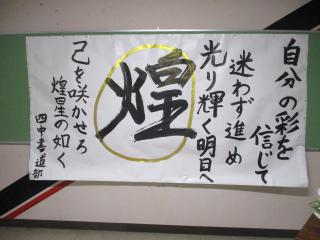 自分の彩を
信じて
迷わず進め
光り輝く明日へ
煌
己を咲かせろ
煌星の如く
四中書道部